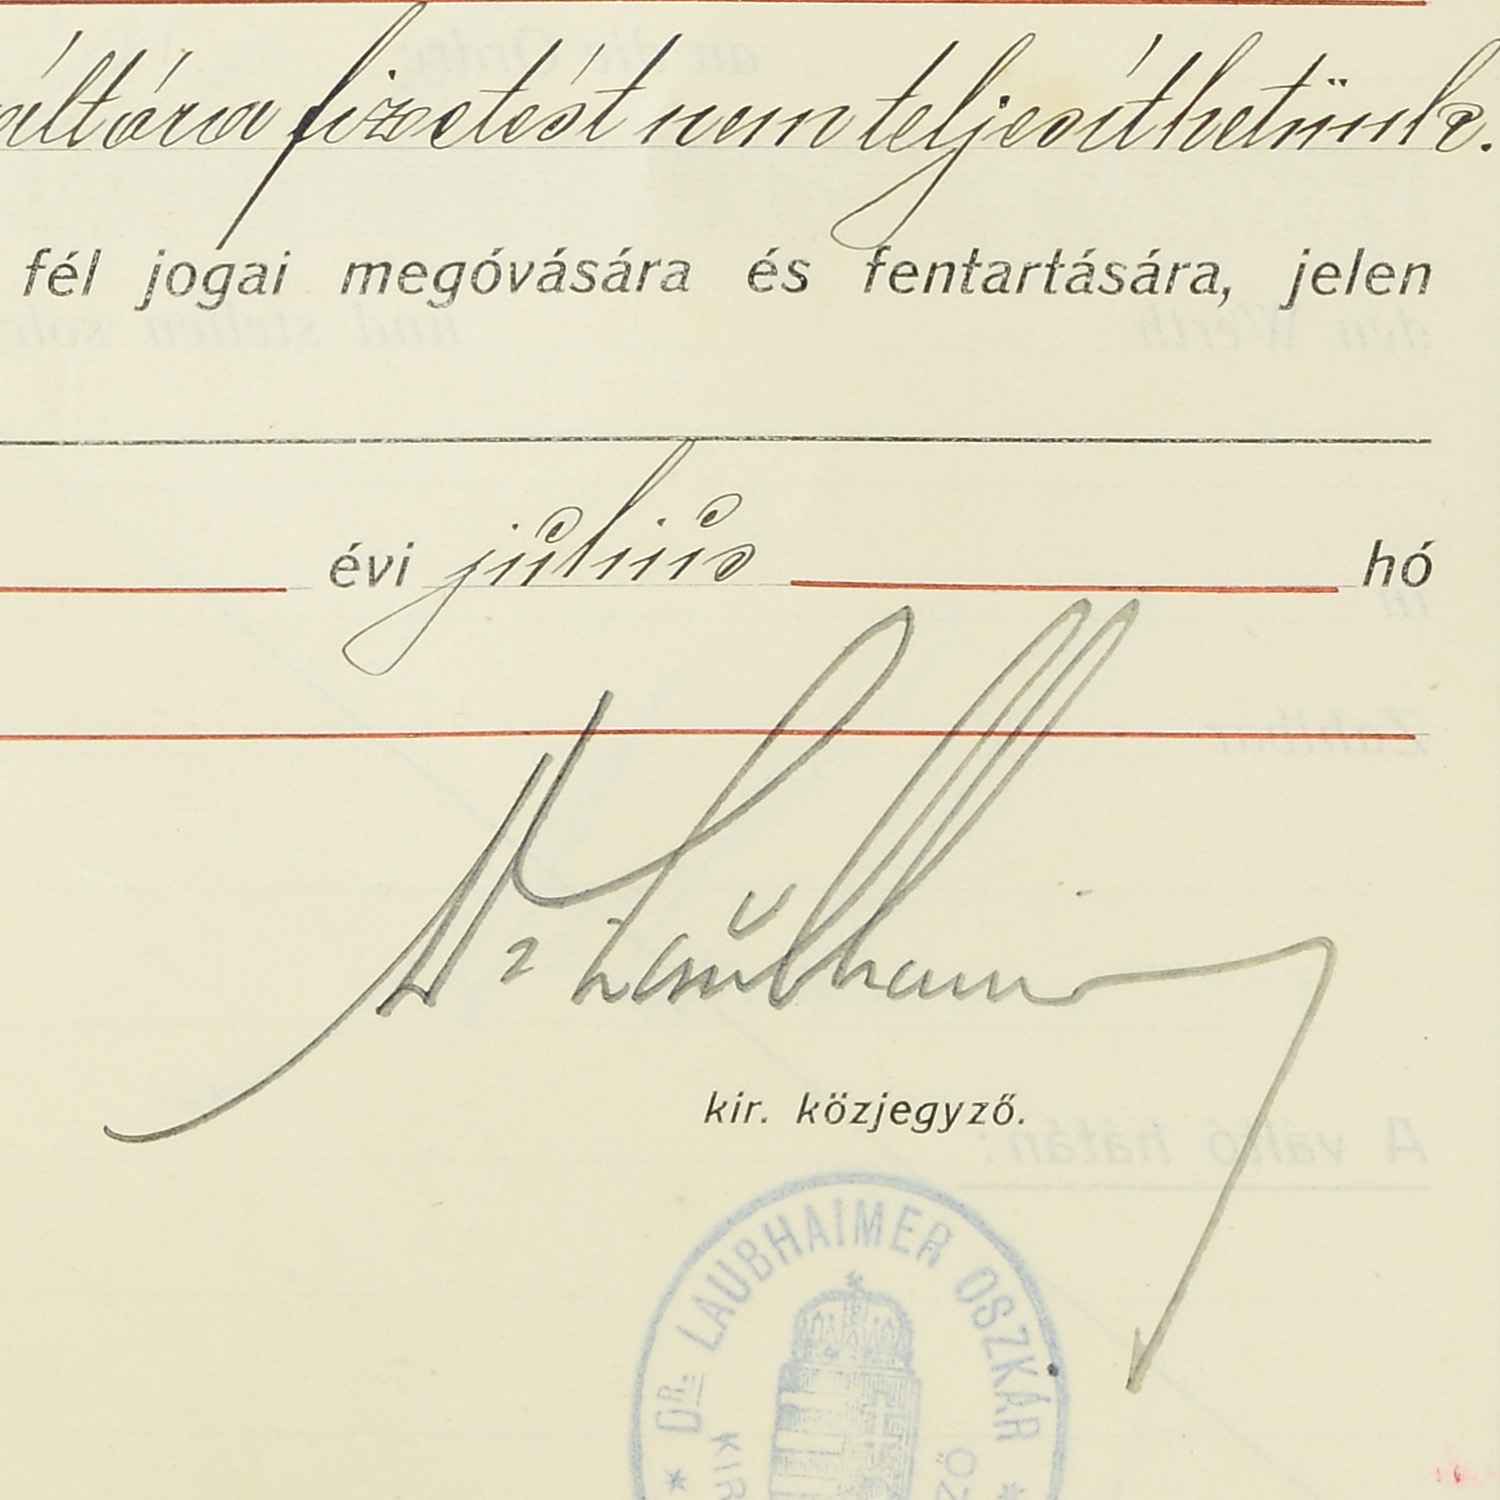 áltóra fizetést nem teljesíthetünk.
fél jogai megóvására és fentartására, jelen
évi július hó
Dr Laubhaimer
kir. közjegyző.
* DR. LAUBHAIMER OSZKÁR *
KIR
ŐZ
A váltó hátán: